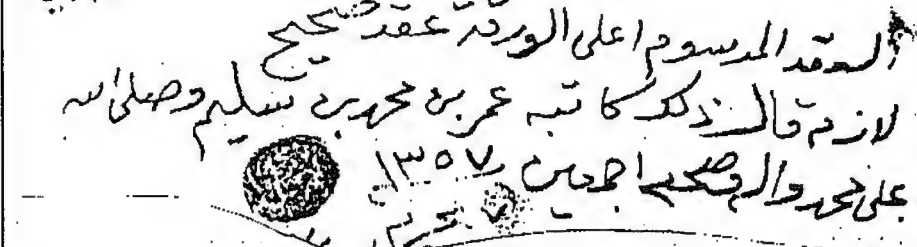 العقد المرسوم اعلى الورقة عقد صحيح
لازم قال ذلك كاتبه عمر بن محمد بن سليم وصلى الله
على محمد واله وصحبه اجمعين ١٣٥٧